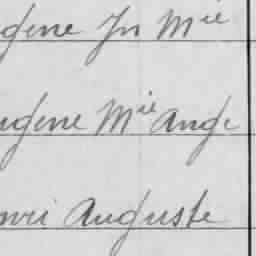 gène Jn Mie
ugène Mie Ange
enri Auguste